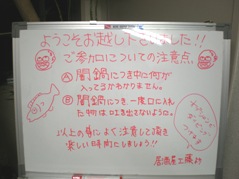 ようこそお越し下さいました!!
ご参加についての注意点
Ⓐ 闇鍋につき中に何が
入ってるかわかりません。
Ⓑ 闇鍋につき、一度口に入れ
た物は吐き出さないよう。
以上の事によく注意して頂き
楽しい時間にしましょう!!
居酒屋工藤より